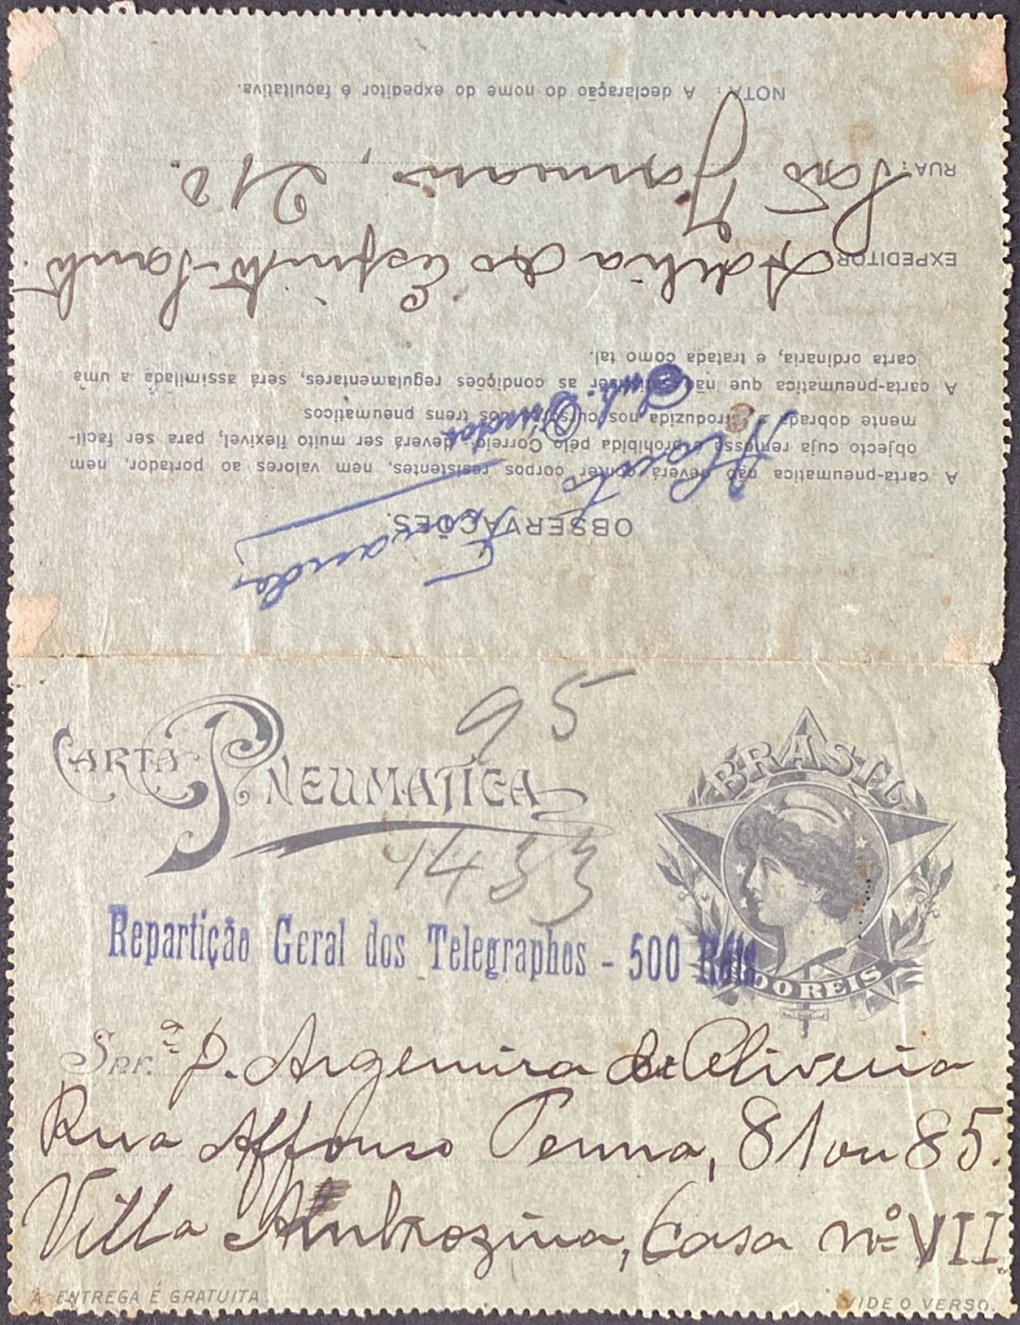 CARTA PNEUMATICA
95
1433
BRASIL
Repartição Geral dos Telegraphos - 500 Réis
300 REIS
Snr.ª D. Argemira de Oliveira
Rua Affonso Penna, 81 ou 85.
Villa Ambrozina, Casa nº VII
A ENTREGA É GRATUITA.
VIDE O VERSO.
OBSERVAÇÕES.
A carta-pneumatica não deverá conter corpos resistentes, nem valores ao portador, nem
objecto cuja remessa é prohibida pelo Correio; deverá ser muito flexivel, para ser facil-
mente dobrada e introduzida nos cursores dos trens pneumaticos
A carta-pneumatica que não satisfizer as condições regulamentares, será assimilada a uma
carta ordinaria, e tratada como tal.
Sub. Director
EXPEDITOR: Adelia do Espirito-Santo.
RUA: São Januario, 210.
NOTA: A declaração do nome do expeditor é facultativa.